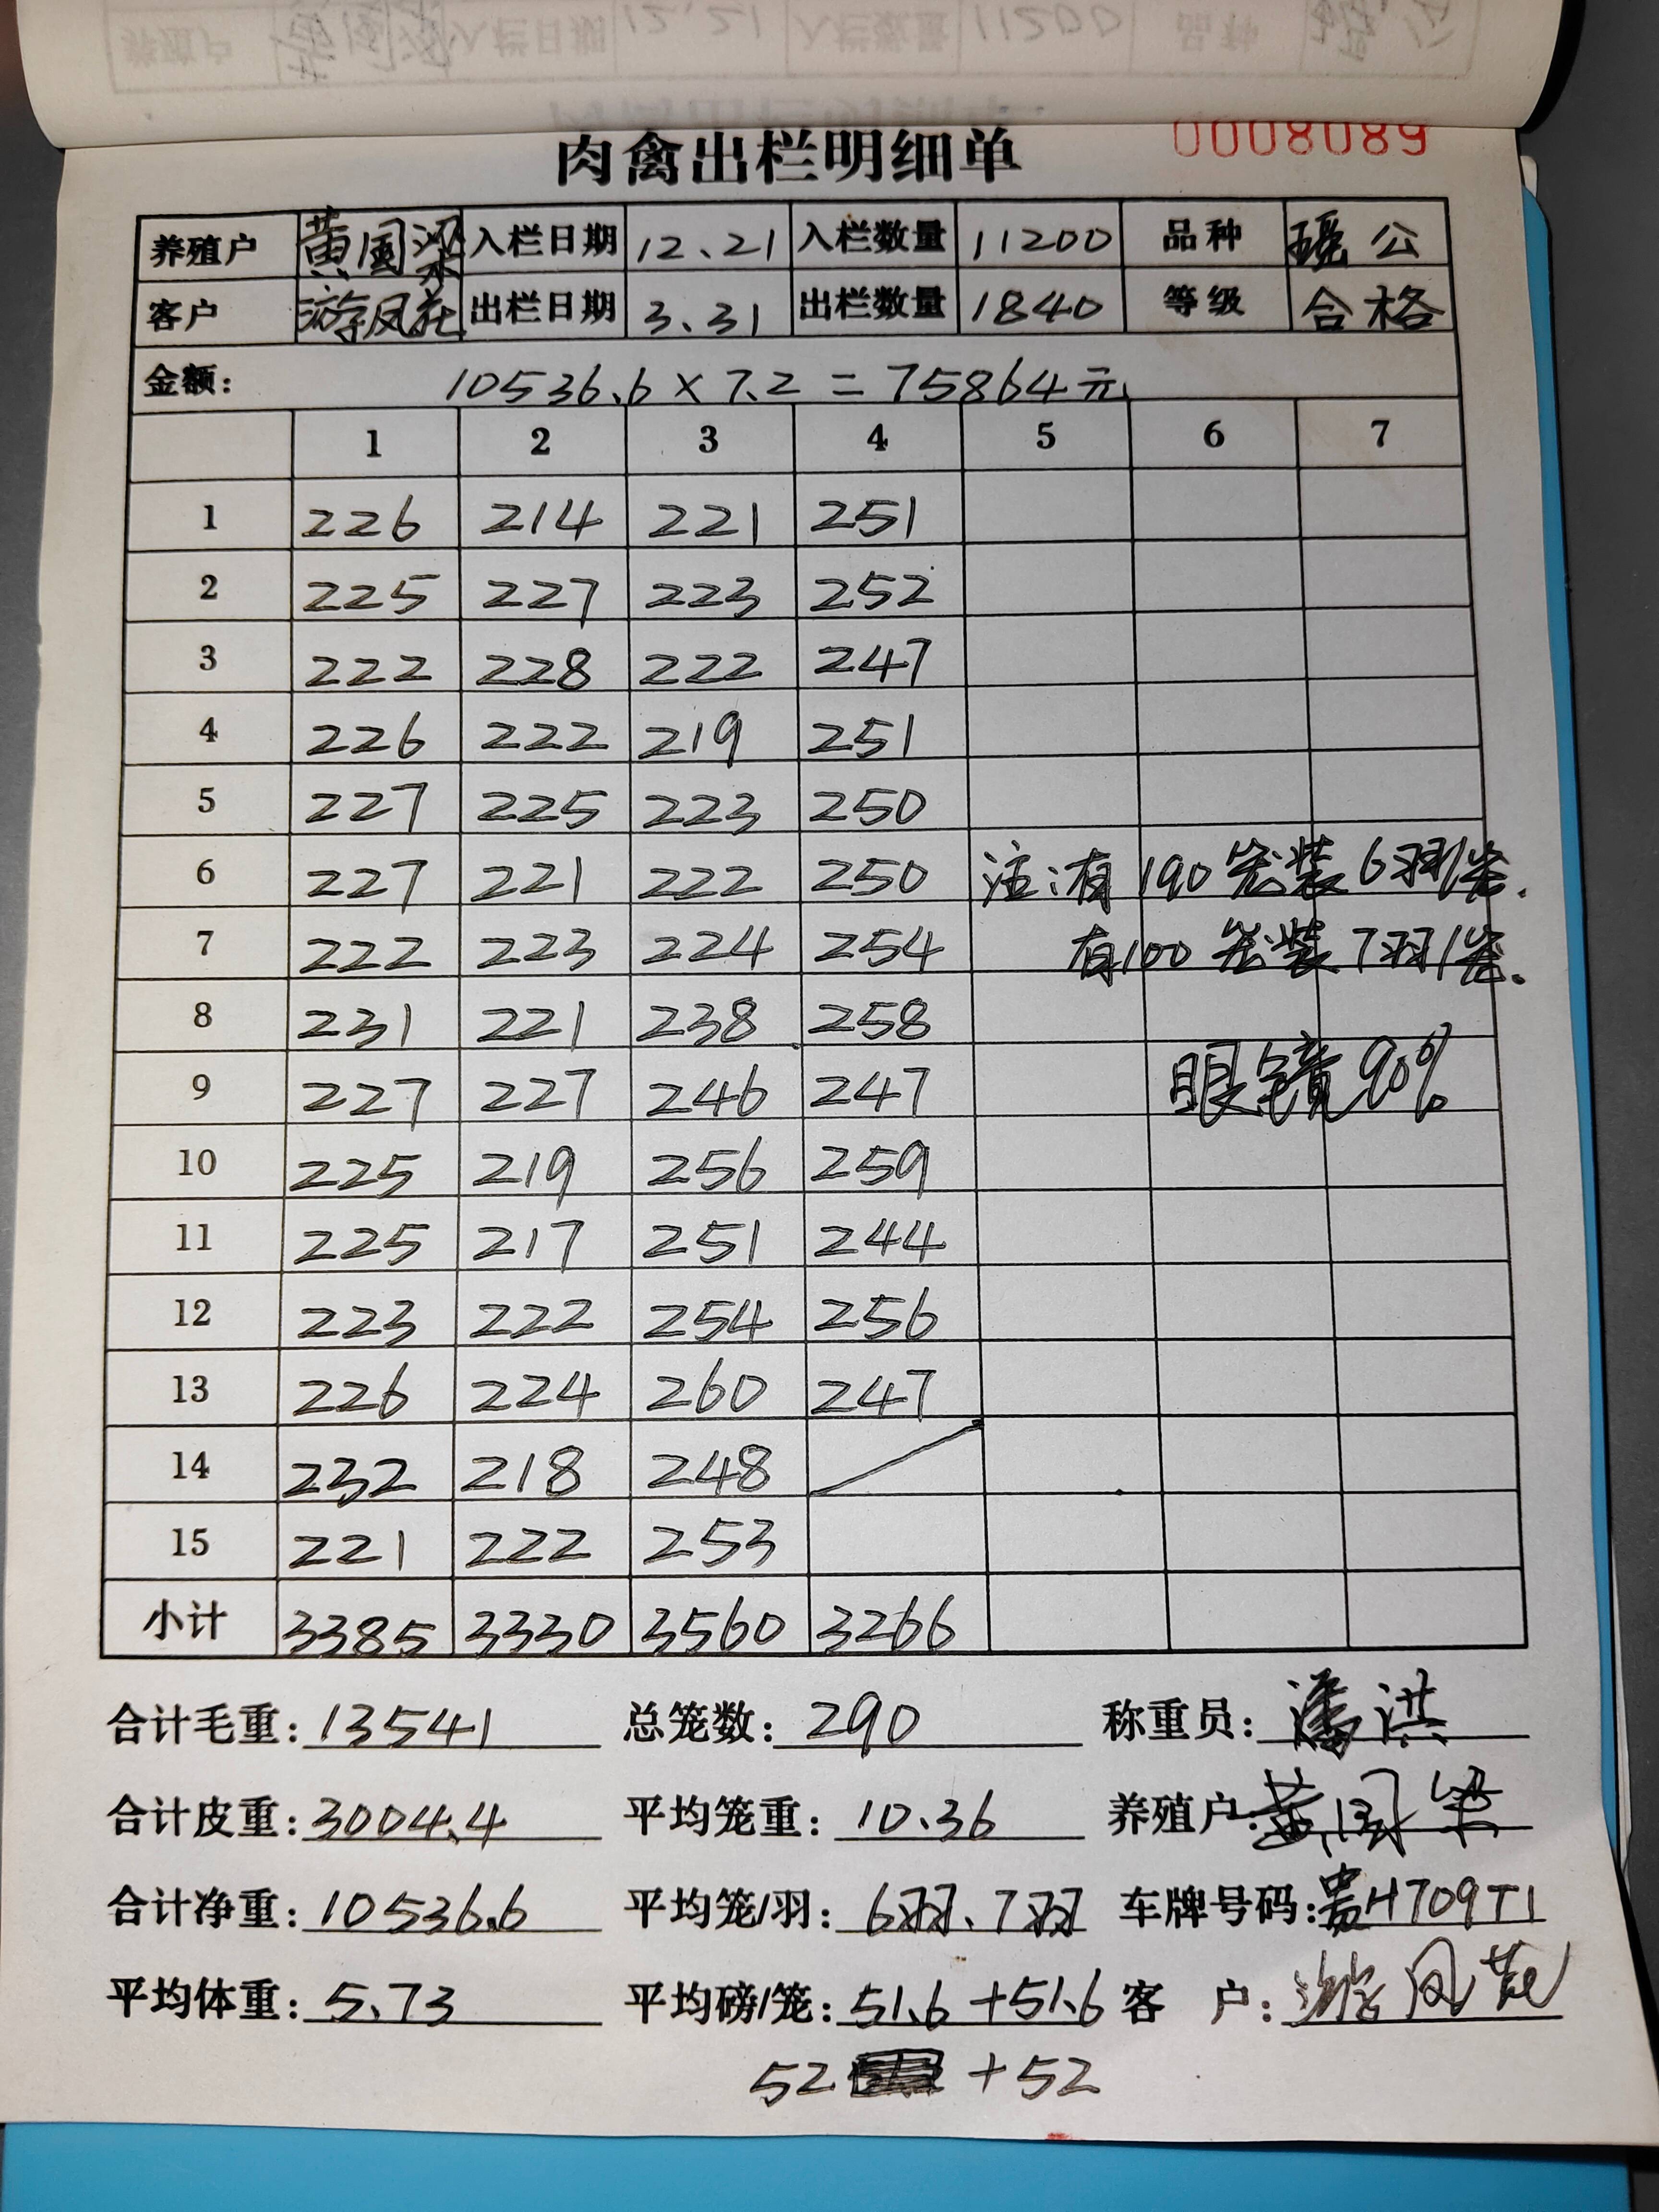 0008089
肉禽出栏明细单
养殖户 黄国梁 入栏日期 12.21 入栏数量 11200 品种 瑶公
客户 游凤花 出栏日期 3.31 出栏数量 1840 等级 合格
金额: 10536.6 × 7.2 = 75864元
1 2 3 4 5 6 7
1 226 214 221 251
2 225 227 223 252
3 222 228 222 247
4 226 222 219 251
5 227 225 223 250
6 227 221 222 250 注:有190笼装6羽1笼.
7 222 223 224 254 有100笼装7羽1笼.
8 231 221 238 258
9 227 227 246 247 眼镜90%
10 225 219 256 259
11 225 217 251 244
12 223 222 254 256
13 226 224 260 247
14 232 218 248
15 221 222 253
小计 3385 3330 3560 3266
合计毛重: 13541 总笼数: 290 称重员: 潘洪
合计皮重: 3004.4 平均笼重: 10.36 养殖户: 黄国梁
合计净重: 10536.6 平均笼/羽: 6羽.7羽 车牌号码: 贵H709T1
平均体重: 5.73 平均磅/笼: 51.6+51.6 客 户: 游凤花
52 +52